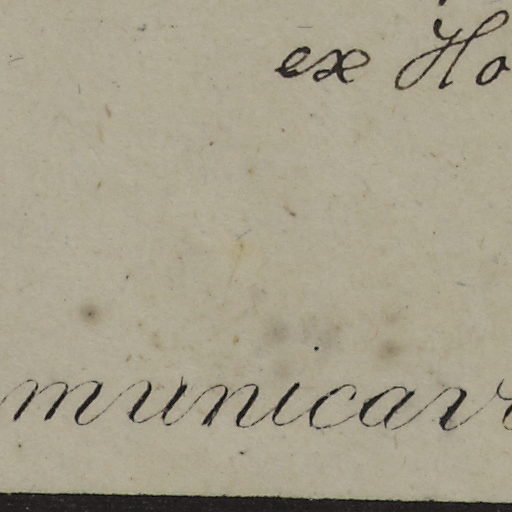 ex Ho
municav